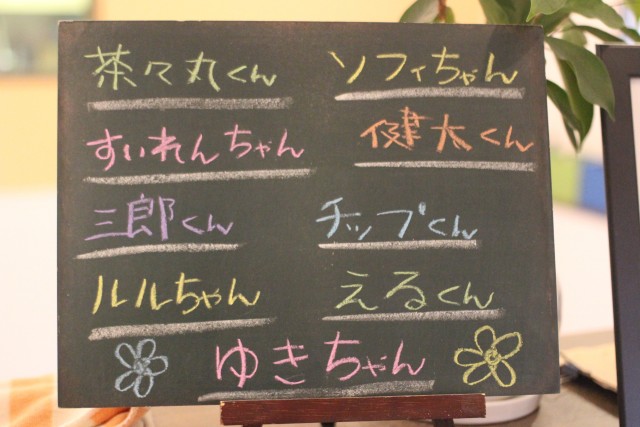 茶々丸くん ソフィちゃん
すいれんちゃん 健太くん
三郎くん チップくん
ルルちゃん えるくん
ゆきちゃん